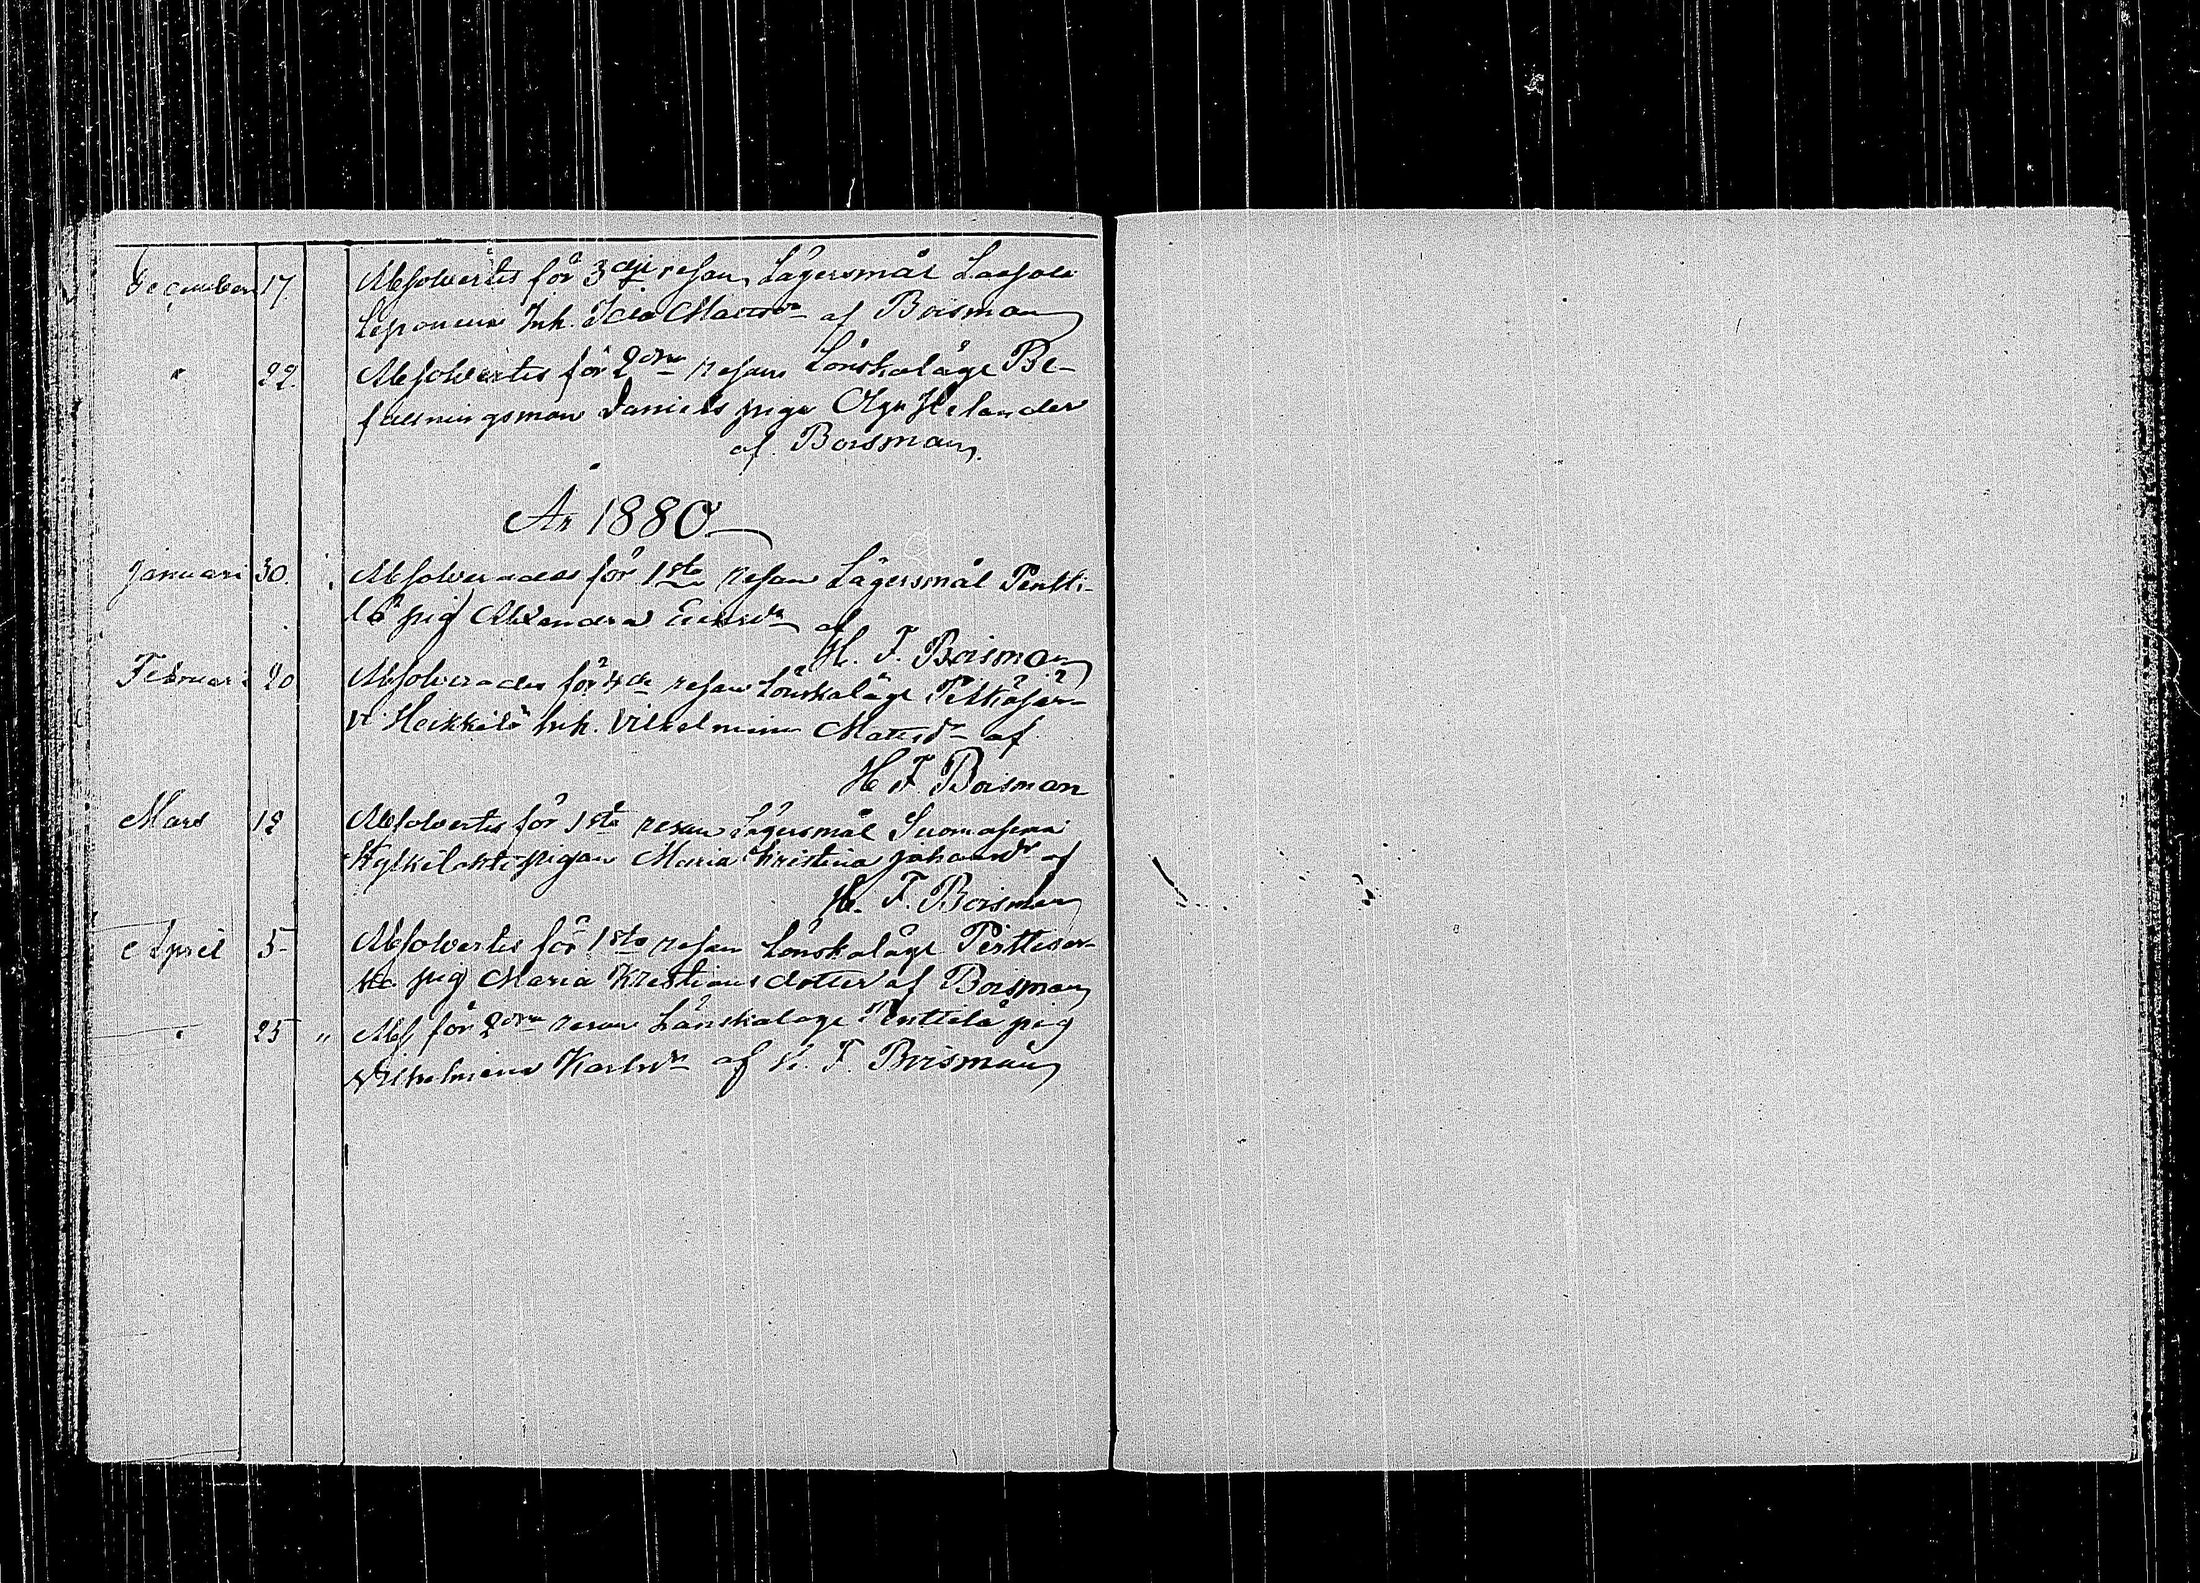 December 17. Absolvertes för 3dje resan Lägersmål Laajala
Leponiemi Inh. Ida Mattsdr af Boisman
" 22. Absolvertes för 2dra resan Lönskaläge Be-
fallningsman Daniels piga Olga Helander
af Boisman.
År 1880
Januari 30. Absolverades för 1sta resan Lägersmål Pentti-
lä pig Alexandra Ericsdr af
H. F. Boisman
Februari 20 Absolverades för 4de resan Lönskaläge Pitkäjär-
vi Heikkilä Inh. Vilhelmina Matsdr af
H F Boisman
Mars 12 Absolvertes för 1sta resan Lägersmål
pigan Maria Kristina Johansdr af
H. F. Boisman
April 5 Absolvertes för 1sta resan Lönskaläge
pig Maria Kristiansdotter af Boisman
" 25 " Abs för 2dra resan Länskaläge Penttilä pig
Vilhelmina Karlsdr af H. F. Boisman